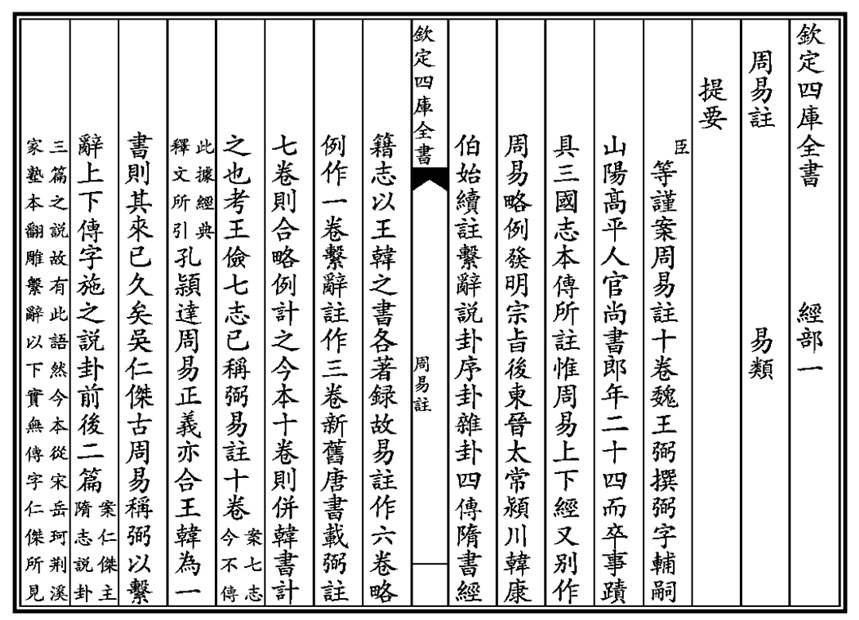 欽定四庫全書　經部一
周易註　易類
提要
臣等謹案周易註十卷魏王弼撰弼字輔嗣
山陽髙平人官尚書郎年二十四而卒事蹟
具三國志本傳所註惟周易上下經又别作
周易略例發明宗㫖後東晉太常潁川韓康
伯始續註繫辭説卦序卦雜卦四傳隋書經
欽定四庫全書　周易註
籍志以王韓之書各著録故易註作六卷略
例作一卷繫辭註作三卷新舊唐書載弼註
七卷則合略例計之今本十卷則併韓書計
之也考王儉七志已稱弼易註十卷案七志今不傳
此據經典釋文所引孔潁達周易正義亦合王韓為一
書則其來已久矣吳仁傑古周易稱弼以繫
辭上下傳字施之説卦前後二篇案仁傑主隋志説卦
三篇之説故有此語然今本從宋岳珂荆溪
家塾本翻雕繫辭以下實無傳字仁傑所見